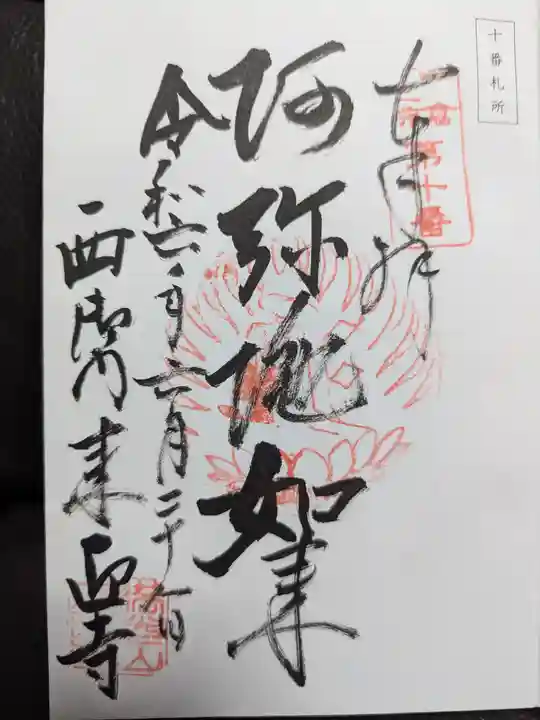 十番札所
奉拝
第十番
阿弥陀如来
令和六年六月二十八日
西御門 来迎寺